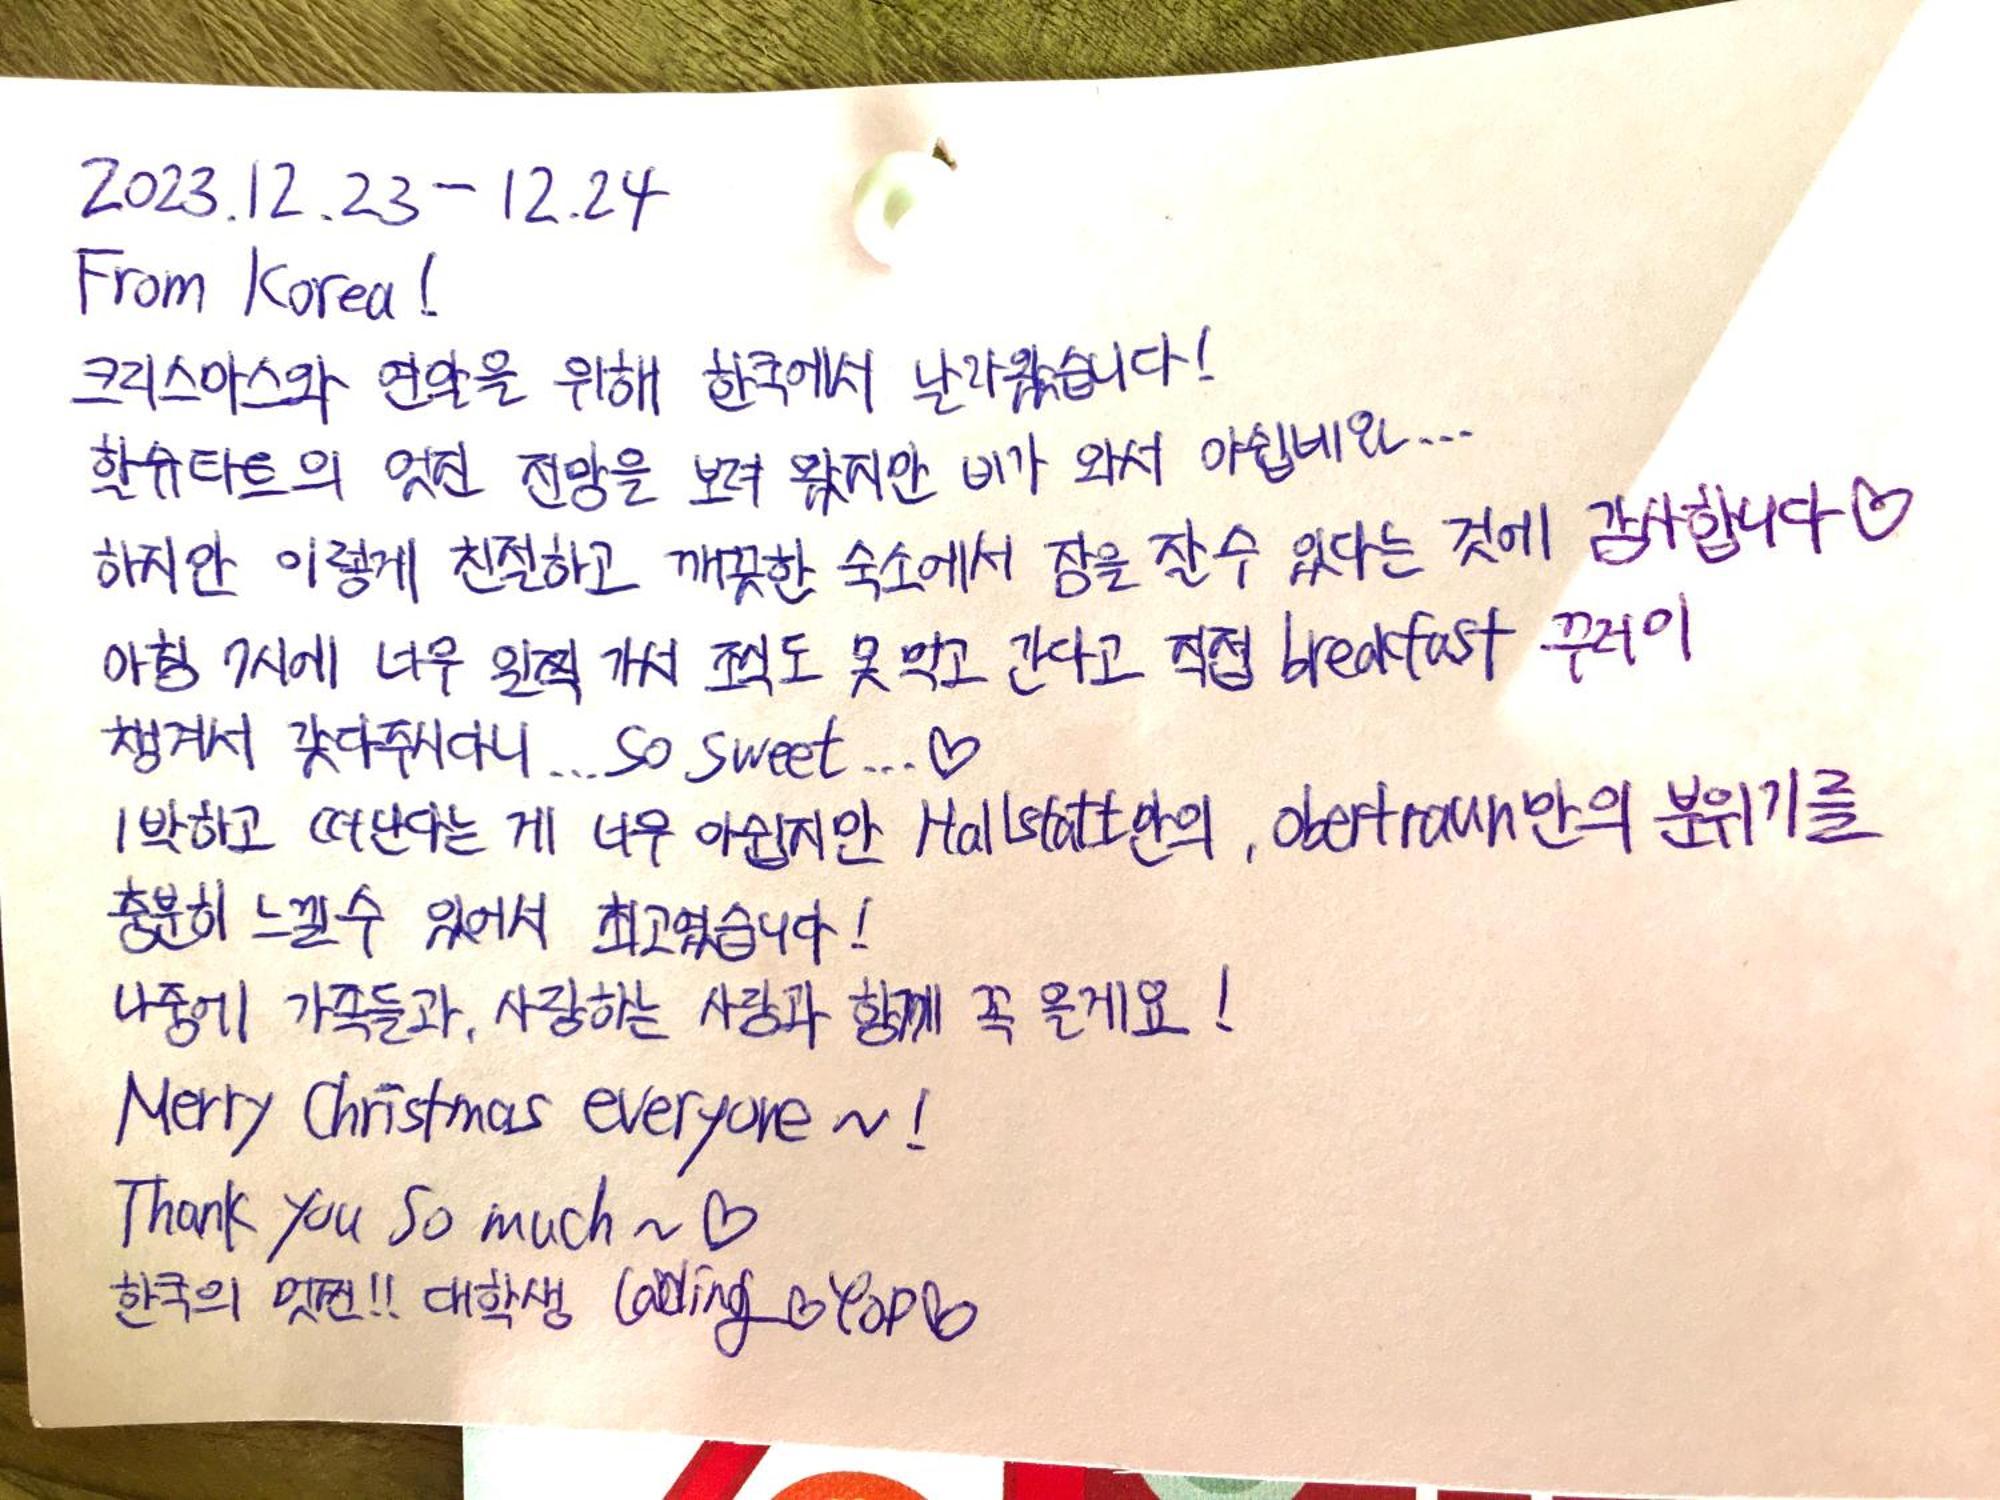 2023.12.23 - 12.24
From Korea!
크리스마스와 연말을 위해 한국에서 날라왔습니다!
할슈타트의 멋진 전망을 보려 왔지만 비가 와서 아쉽네요....
하지만 이렇게 친절하고 깨끗한 숙소에서 잠을 잘 수 있다는 것에 감사합니다♡
아침 7시에 너무 일찍 가서 조식도 못 먹고 간다고 직접 breakfast 꾸러미
챙겨서 갖다주시다니...so sweet...♡
1박하고 떠난다는 게 너무 아쉽지만 Hallstatt만의, obertraun만의 분위기를
충분히 느낄 수 있어서 최고였습니다!
나중에 가족들과, 사랑하는 사람과 함께 꼭 올게요!
Merry Christmas everyone~!
Thank you so much~♡
한국의 멋찐!! 대학생 ♡YOP♡